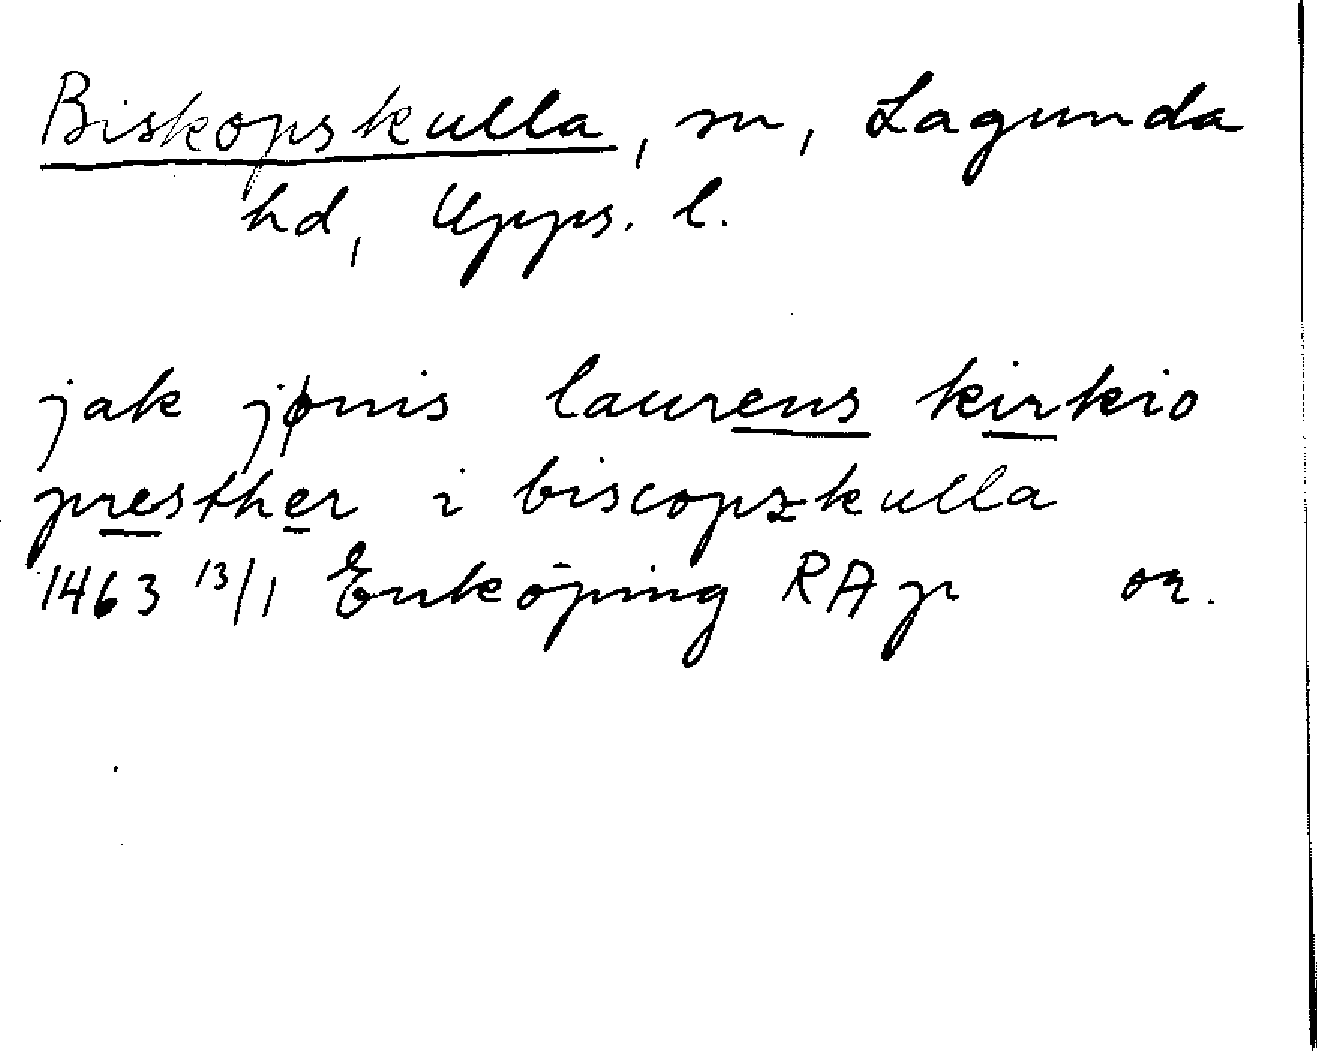 Biskopskulla, sn, Lagunda
hd, Upps. l.
jak jønis laurens kirkio
presther i biscopszkulla
1463 13/1 Enköping RAp or.